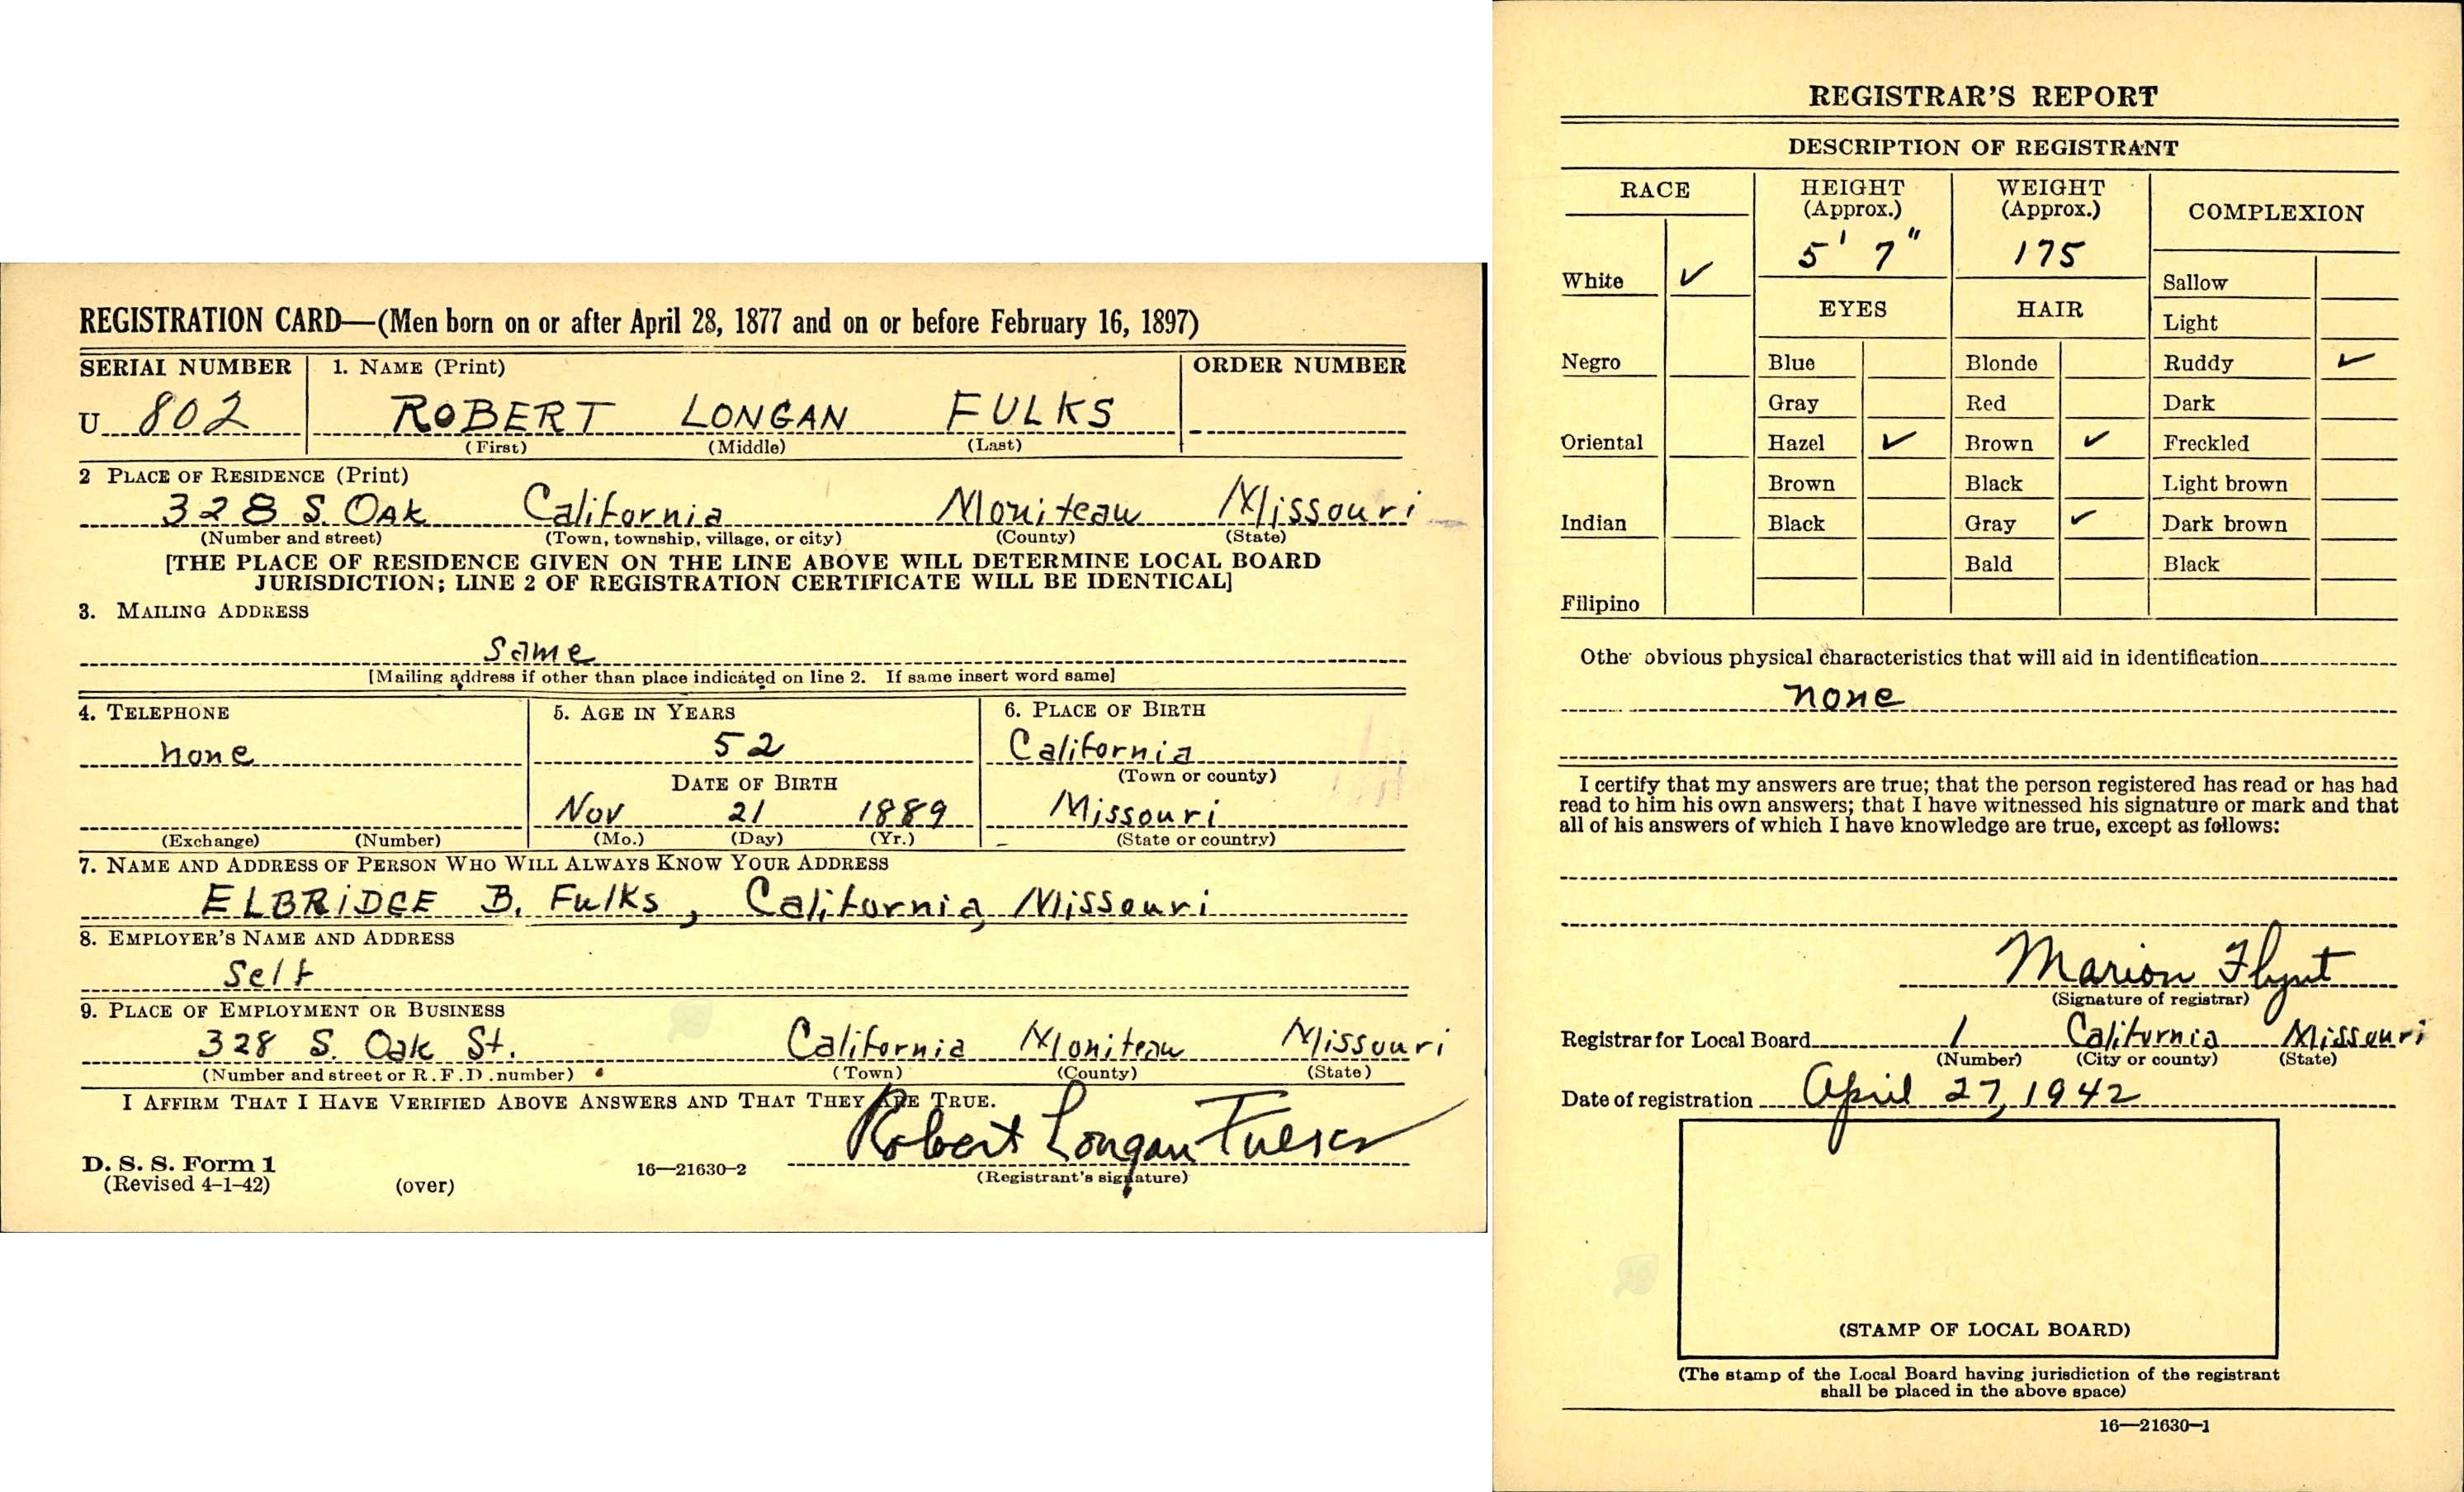 REGISTRATION CARD—(Men born on or after April 28, 1877 and on or before February 16, 1897)
SERIAL NUMBER
1. NAME (Print)
ORDER NUMBER
U 802
ROBERT LONGAN FULKS
(First) (Middle) (Last)
2 PLACE OF RESIDENCE (Print)
328 S. OAK California Moniteau Missouri
(Number and street) (Town, township, village, or city) (County) (State)
[THE PLACE OF RESIDENCE GIVEN ON THE LINE ABOVE WILL DETERMINE LOCAL BOARD
JURISDICTION; LINE 2 OF REGISTRATION CERTIFICATE WILL BE IDENTICAL]
3. MAILING ADDRESS
Same
[Mailing address if other than place indicated on line 2. If same insert word same]
4. TELEPHONE
none
(Exchange) (Number)
5. AGE IN YEARS
52
DATE OF BIRTH
Nov 21 1889
(Mo.) (Day) (Yr.)
6. PLACE OF BIRTH
California
(Town or county)
Missouri
(State or country)
7. NAME AND ADDRESS OF PERSON WHO WILL ALWAYS KNOW YOUR ADDRESS
ELBRiDGE B. Fulks, California, Missouri
8. EMPLOYER'S NAME AND ADDRESS
Self
9. PLACE OF EMPLOYMENT OR BUSINESS
328 S. Oak St. California Moniteau Missouri
(Number and street or R.F.D. number) (Town) (County) (State)
I AFFIRM THAT I HAVE VERIFIED ABOVE ANSWERS AND THAT THEY ARE TRUE.
Robert Longan Fulks
(Registrant's signature)
D. S. S. Form 1
(Revised 4-1-42)
(over)
16—21630-2
REGISTRAR'S REPORT
DESCRIPTION OF REGISTRANT
RACE
White ✓
Negro
Oriental
Indian
Filipino
HEIGHT
(Approx.)
5' 7"
EYES
Blue
Gray
Hazel ✓
Brown
Black
WEIGHT
(Approx.)
175
HAIR
Blonde
Red
Brown ✓
Black
Gray ✓
Bald
COMPLEXION
Sallow
Light
Ruddy ✓
Dark
Freckled
Light brown
Dark brown
Black
Othe obvious physical characteristics that will aid in identification
none
I certify that my answers are true; that the person registered has read or has had
read to him his own answers; that I have witnessed his signature or mark and that
all of his answers of which I have knowledge are true, except as follows:
Marion Flynt
(Signature of registrar)
Registrar for Local Board 1 California Missouri
(Number) (City or county) (State)
Date of registration April 27, 1942
(STAMP OF LOCAL BOARD)
(The stamp of the Local Board having jurisdiction of the registrant
shall be placed in the above space)
16—21630-1